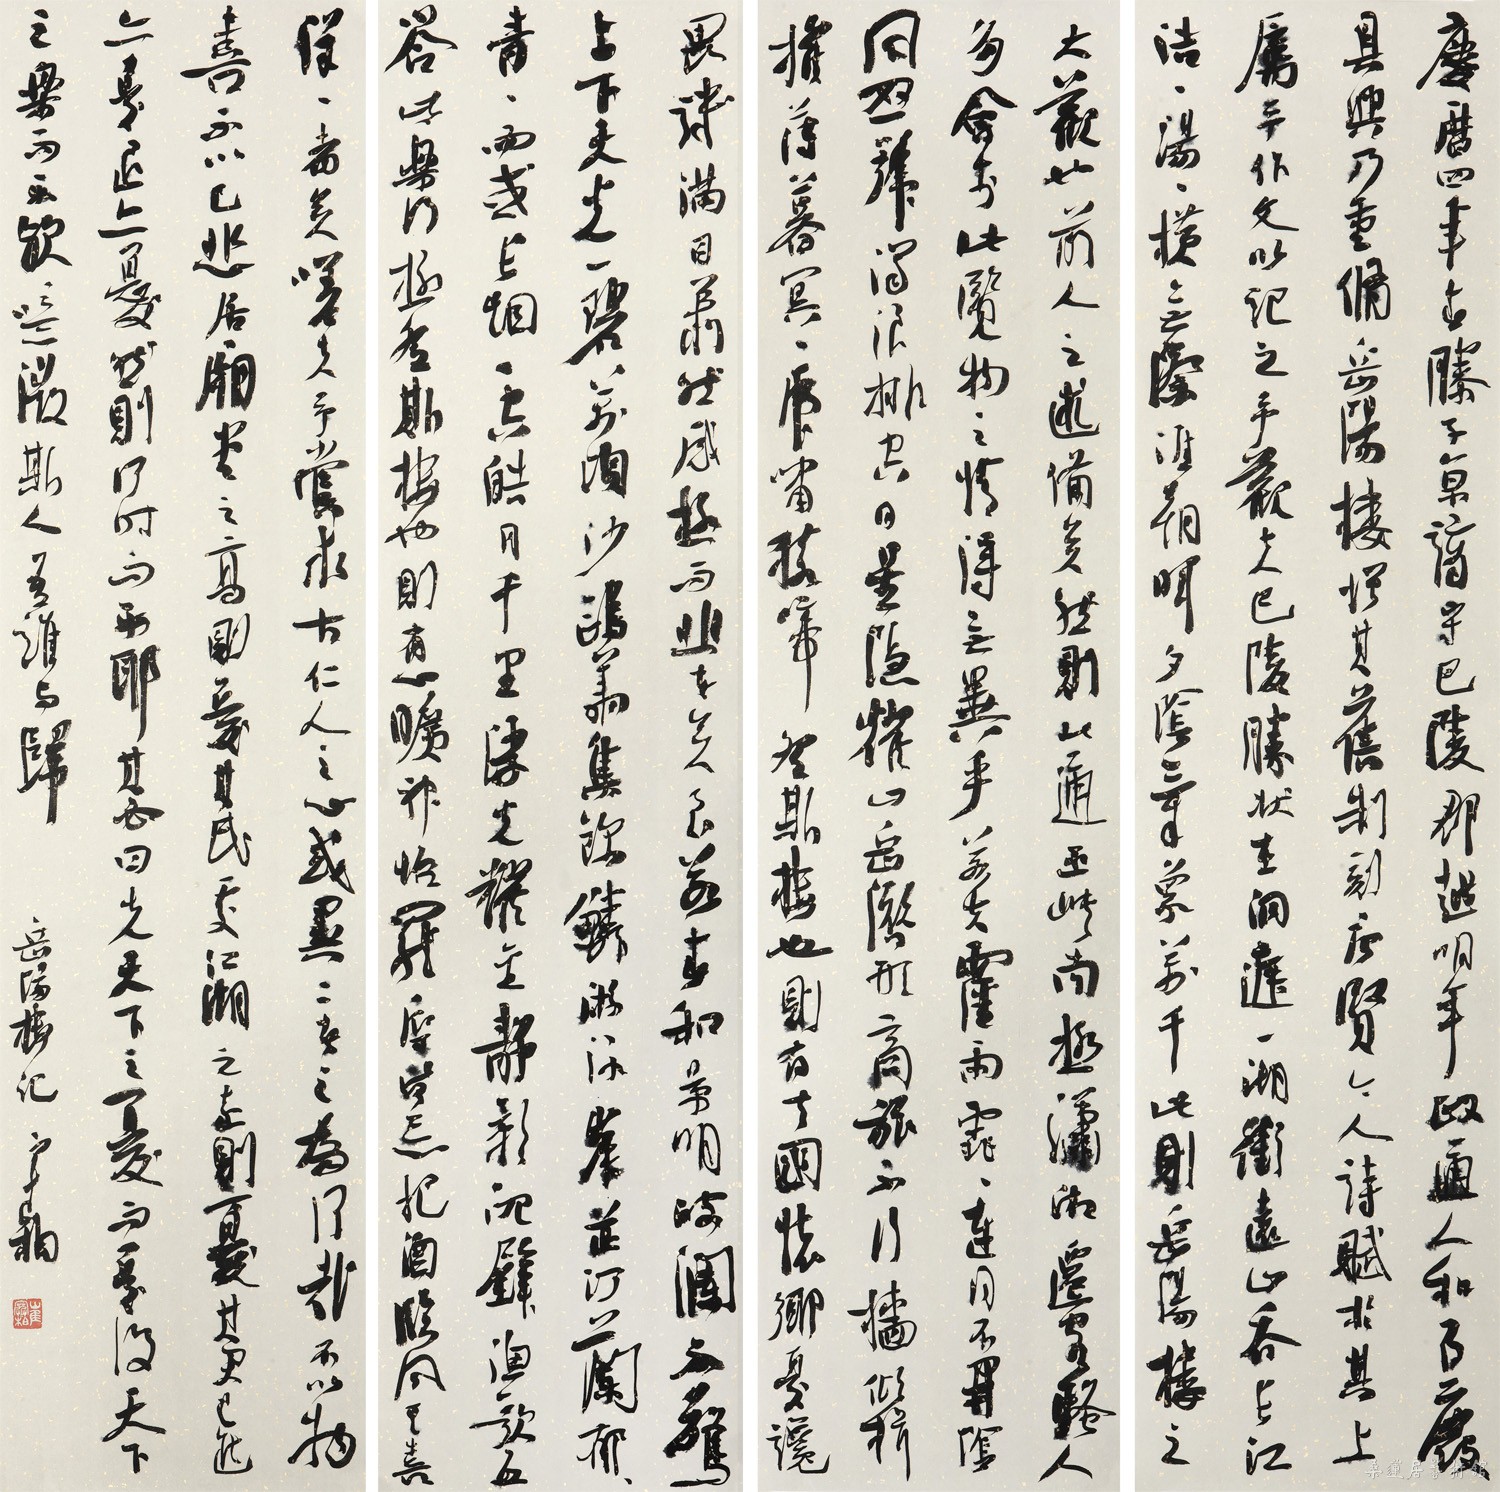 慶曆四年春滕子京謫守巴陵郡越明年政通人和百廢
具興乃重脩岳陽樓增其舊制刻唐賢今人詩賦於其上
屬予作文以記之予觀夫巴陵勝狀在洞庭一湖銜遠山吞長江
浩浩湯湯橫無際涯朝暉夕陰氣象萬千此則岳陽樓之
大觀也前人之述備矣然則北通巫峽南極瀟湘遷客騷人
多會於此覽物之情得無異乎若夫霪雨霏霏連月不開陰
風怒號濁浪排空日星隱耀山岳潛形商旅不行檣傾楫
摧薄暮冥冥虎嘯猿啼登斯樓也則有去國懷鄉憂讒
畏譏滿目蕭然感極而悲者矣至若春和景明波瀾不驚
上下天光一碧萬頃沙鷗翔集錦鱗游泳岸芷汀蘭郁郁
青青而或長煙一空皓月千里浮光耀金靜影沉璧漁歌互
答此樂何極登斯樓也則有心曠神怡寵辱皆忘把酒臨風其喜
洋洋者矣嗟夫予嘗求古仁人之心或異二者之為何哉不以物
喜不以己悲居廟堂之高則憂其民處江湖之遠則憂其君是進
亦憂退亦憂然則何時而樂耶其必曰先天下之憂而憂後天下
之樂而樂歟噫微斯人吾誰與歸
岳陽樓記 寒柏
崔寒柏
桑蓮居藝術館